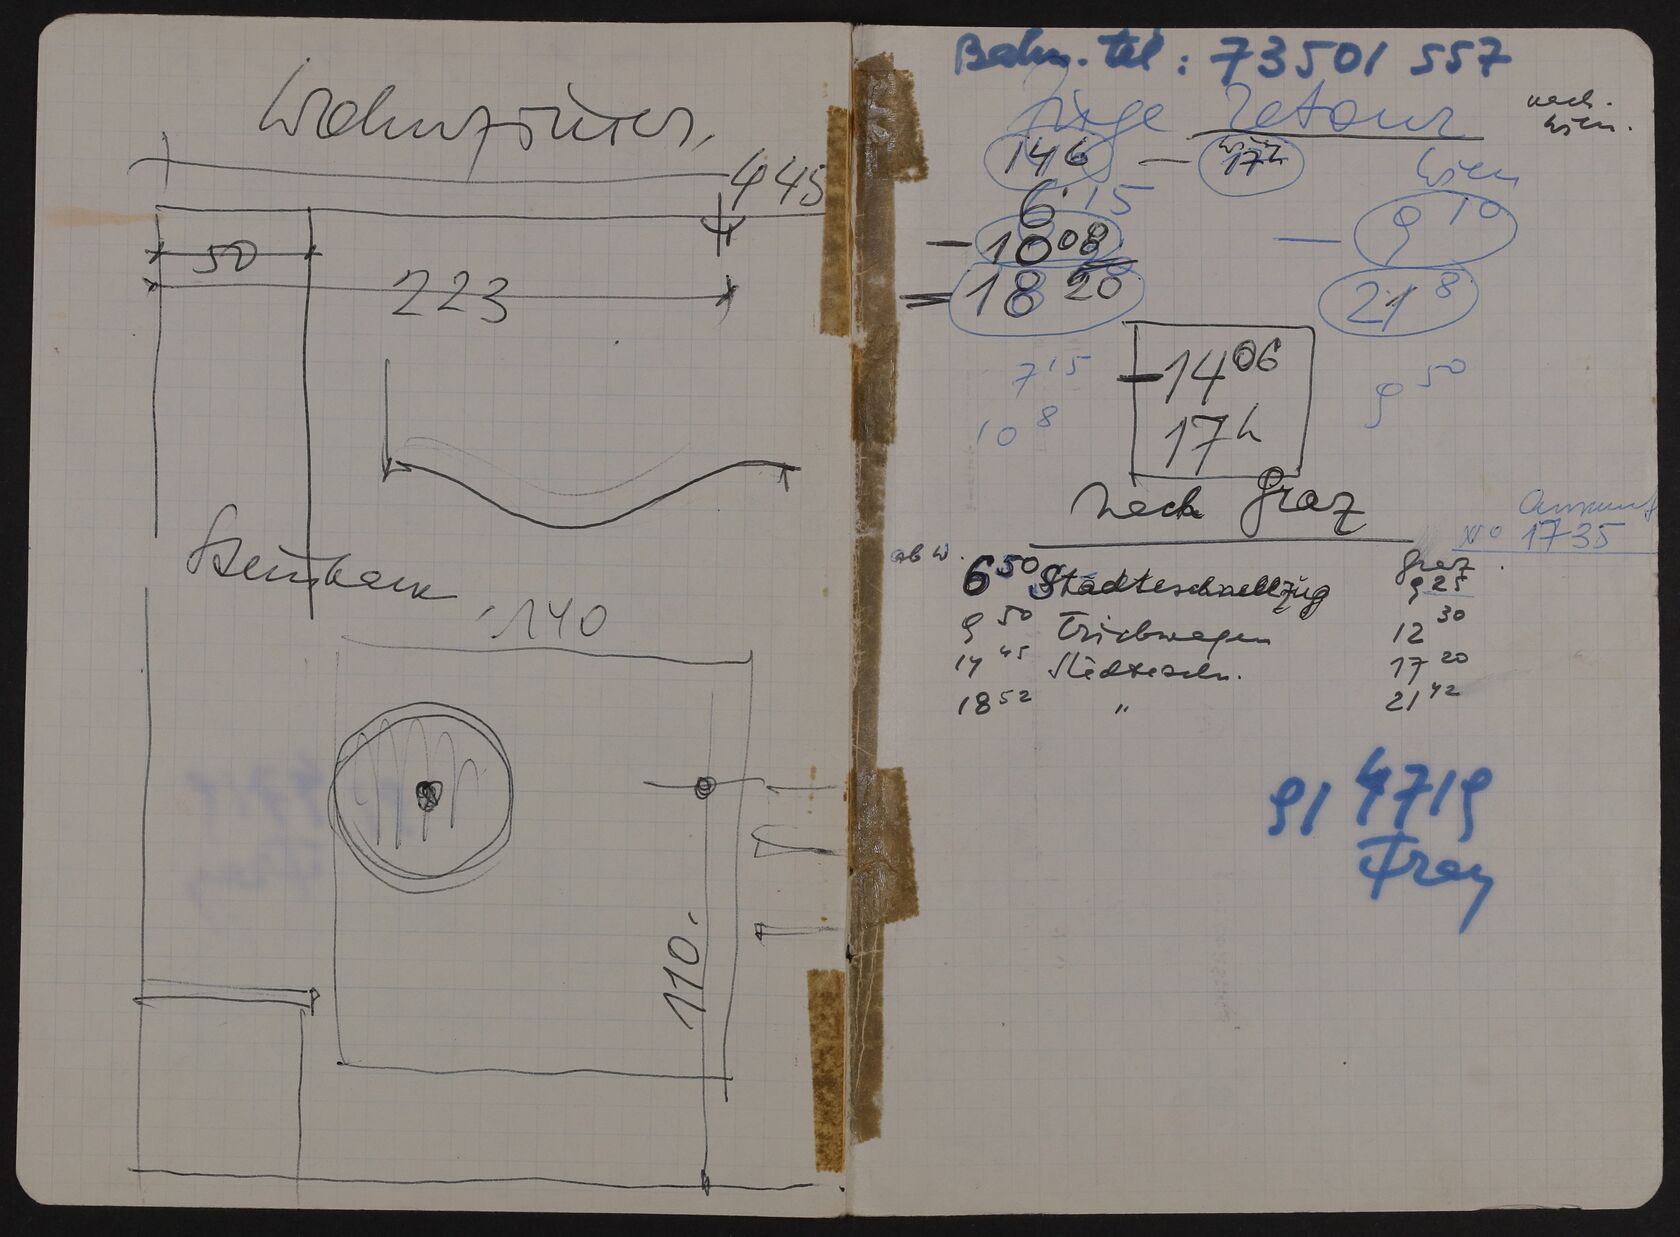 Wohnzimmer,
445
50
223
Steinbank
140
110.
Bahn.tel: 73501 557
Züge retour
nach. Wien.
14 6 — 17h
Wien
6 15
— 10 08 — 9 10
— 18 20 21 8
7 15 — 14 06 9 50
10 8 17h
nach Graz
Ankunft
17 35
ab W. Graz
6 50 Städteschnellzug 9 25
9 50 Triebwagen 12 30
14 45 Städteschn. 17 20
18 52 " 21 42
91 4719
Frey